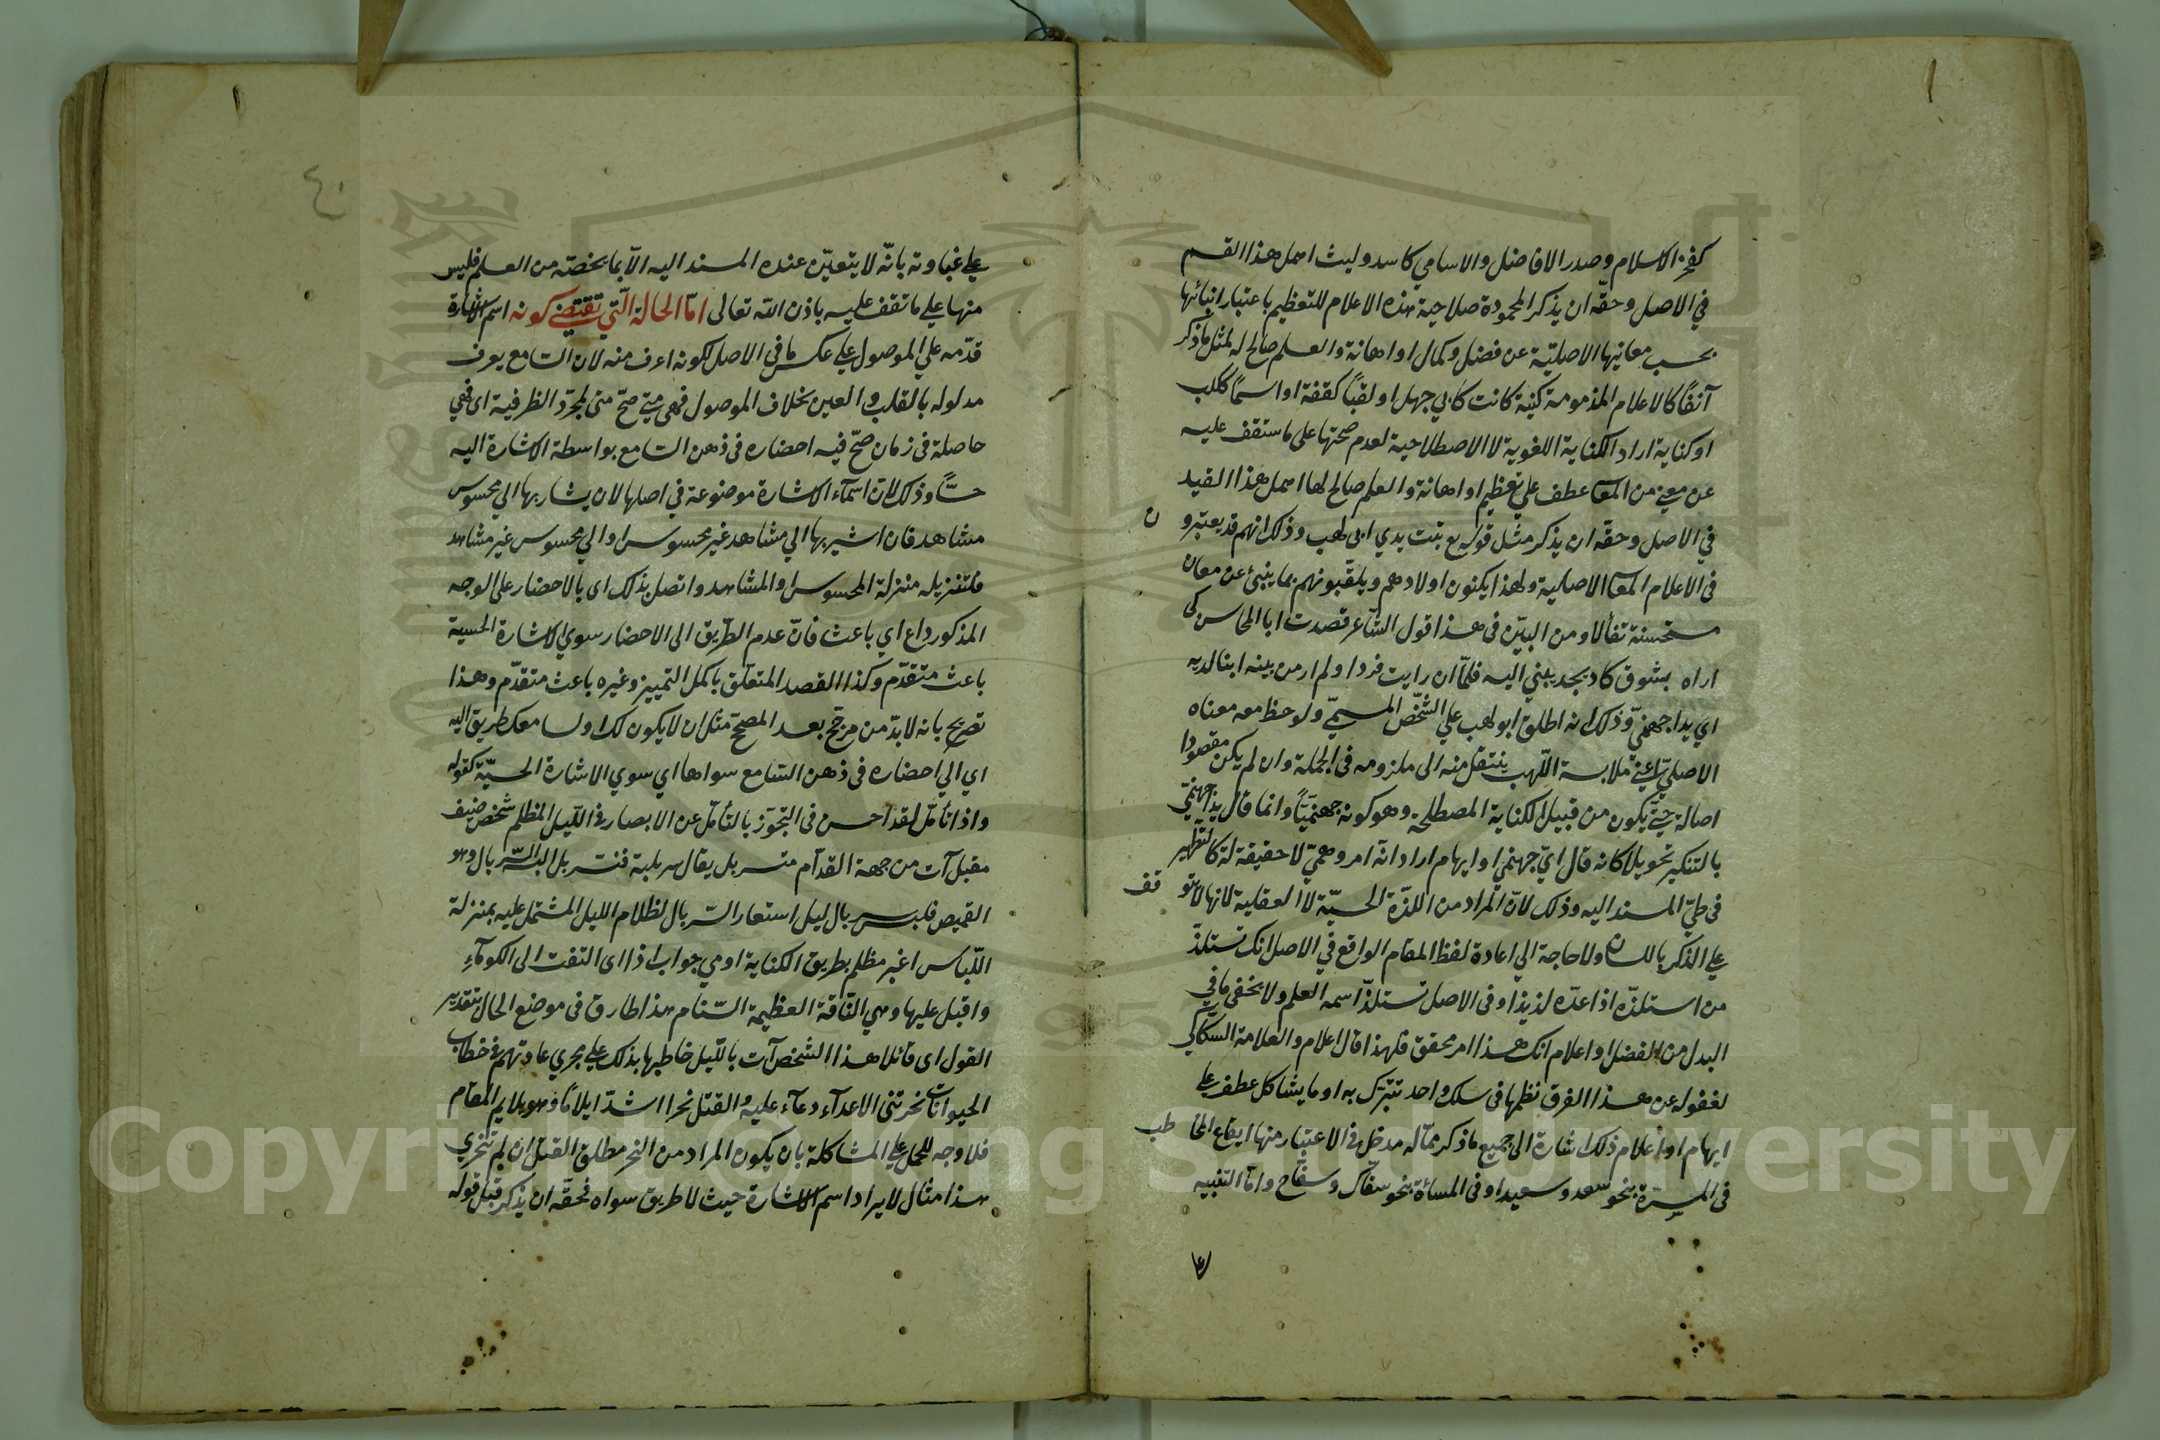 كفخر الاسلام وصدر الافاضل والاسامي كاسد وليث اهمل هذا القسم
في الاصل وحقه ان يذكر المحمودة صلاحية هذه الاعلام للتعظيم باعتبار انبائها
بحسب معانيها الاصليّة عن فضل وكمال او اهانة والعلم صالح له لمثل ما ذكر
آنفًا كالاعلام المذمومة كنية كانت كابي جهل او لقبًا كقفة او اسمًا ككلب
او كناية اراد الكناية اللغوية لا الاصطلاحية لعدم صحتها على ما ستقف عليه
عن معنى من المعا عطف على تعظيم او اهانة والعلم صالح لها اهمل هذا القيد
في الاصل وحقه ان يذكر مثل قوله تع تبت يدي ابى لهب وذلك انهم قد يعتبرو
ن
فى الاعلام المعا الاصلية ولهذا يكنون اولادهم ويلقبونهم بما ينبئ عن معان
مستحسنة تفألا ومن البيّن فى هذا قول الشاعر قصدت ابا المحاسن كى
اراه بشوق كاد يجذبني اليه فلمّا ان رايت فردا ولم ار من بينه ابنا لديه
اي يدا جهنميّ وذلك انه اطلق ابو لهب علي الشخص المسمّى ولوحظ معه معناه
الاصلي اعني ملابسة اللّهب ينتقل منه الى ملزومه فى الجملة وان لم يكن مقصودا
اصالة حتى يكون من قبيل الكناية المصطلحة وهو كونه جهنميًّا وانما قال يدا جهنميّ
بالتنكير تحويلا كانه قال ايّ جهنمي او ايهام اراد انه امر وهميّ لا حقيقة له كالتطهير
فى طيّ المسند اليه وذلك لانّ المراد من اللذّة الحسيّة لا العقلية لانها لا تتو
قف
علي الذكر باللسان ولا حاجة الي اعادة لفظ المقام الواقع في الاصل انك تستلذّ
من استلذّه اذا عدّه لذيذا وفى الاصل تستلذّ اسمه العلم ولا يخفى ما في
البدل من الفضل او اعلام انك هذا امر محقق فلهذا قال اعلام والعلامة السكاكي
لغفوله عن هذا الفرق نظمها فى سلك واحد تتبرّك به او ما يشاكل عطف على
ايهام او اعلام ذلك اشارة الى جميع ما ذكر ممّا له مدخل في الاعتبار منها ايقاع المخا
طب
فى المسرّة بنحو سعد وسعيد او فى المساءة بنحو سفّاك وسفّاح وامّا التنبيه
٤٠
علي غباوته بانّه لا يتعيّن عنده المسند اليه الاّ بما يخصّه من العلم فليس
منها علي ما تقف عليه باذن الله تعالى امّا الحالة الّتي تقتضي كونه اسم الاشارة
قدّمه علي الموصول علي عكس ما في الاصل لكونه اعرف منه لان السامع يعرف
مدلوله بالقلب والعين بخلاف الموصول فهى متى صحّ متى لمجرّد الظرفية اى فهي
حاصلة فى زمان صحّ فيه احضاره فى ذهن السامع بواسطة الاشارة اليه
حسًّا وذلك لانّ اسمآء الاشارة موضوعة في اصلها لان يشار بها الي محسوس
مشاهد فان اشير بها الي مشاهد غير محسوس او الي محسوس غير مشاهد
فلتنزيله منزلة المحسوس او المشاهد واتصل بذلك اى بالاحضار على الوجه
المذكور داع اي باعث فانّ عدم الطّريق الى الاحضار سوي الاشارة الحسية
باعث متقدّم وكذا القصد المتعلّق باكمل التمييز وغيره باعث متقدّم وهذا
تصريح بانه لا بدّ من مرجّح بعد المصحّح مثل ان لا يكون لك او لسامعك طريق اليه
اي الي احضاره فى ذهن السّامع سواها اي سوي الاشارة الحسيّة كقوله
واذا تأمّل لقد احسن فى التجوّز بالتأمّل عن الابصار في اللّيل المظلم شخص ضيف
مقبل آت من جهة القدّام متسربل يقال سربلته فتسربل البسه السّربال وهو
القميص فلبس سربال ليل استعار السّربال لظلام الليل المشتمل عليه بمنزلة
اللّباس اغبر مظلم بطريق الكناية اومي جواب اذا اى التفت الى الكومآءِ
واقبل عليها وهي النّاقة العظيمة السّنام هذا طارق فى موضع الحال بتقدير
القول اى قائلا هذا الشخص آت باللّيل خاطبها بذلك علي مجري عادتهم في خطاب
الحيوانات نحرتنى الاعدآء دعآء عليه والقتل نحرا اشدّ ايلامًا وهو يلايم المقام
فلا وجه للحمل علي المشاكلة بان يكون المراد من النحر مطلق القتل ان لم تنحري
هذا مثال لايراد اسم الاشارة حيث لا طريق سواه فحقّه ان يذكر قبل قوله